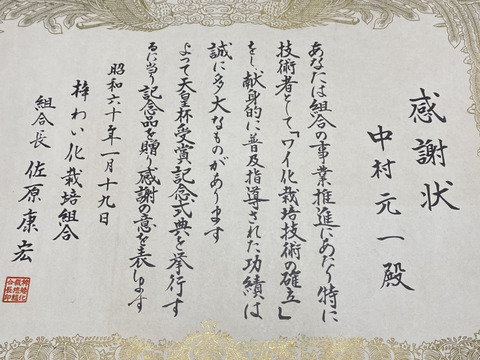 感謝状
中村元一殿
あなたは組合の事業推進にあたり特に
技術者として「ワイ化栽培技術の確立」
をし、献身的に普及指導された功績は
誠に多大なものがあります
よって天皇杯受賞記念式典を挙行す
るに当り記念品を贈り感謝の意を表します
昭和六十年一月十九日
梓わい化栽培組合
組合長 佐原康宏